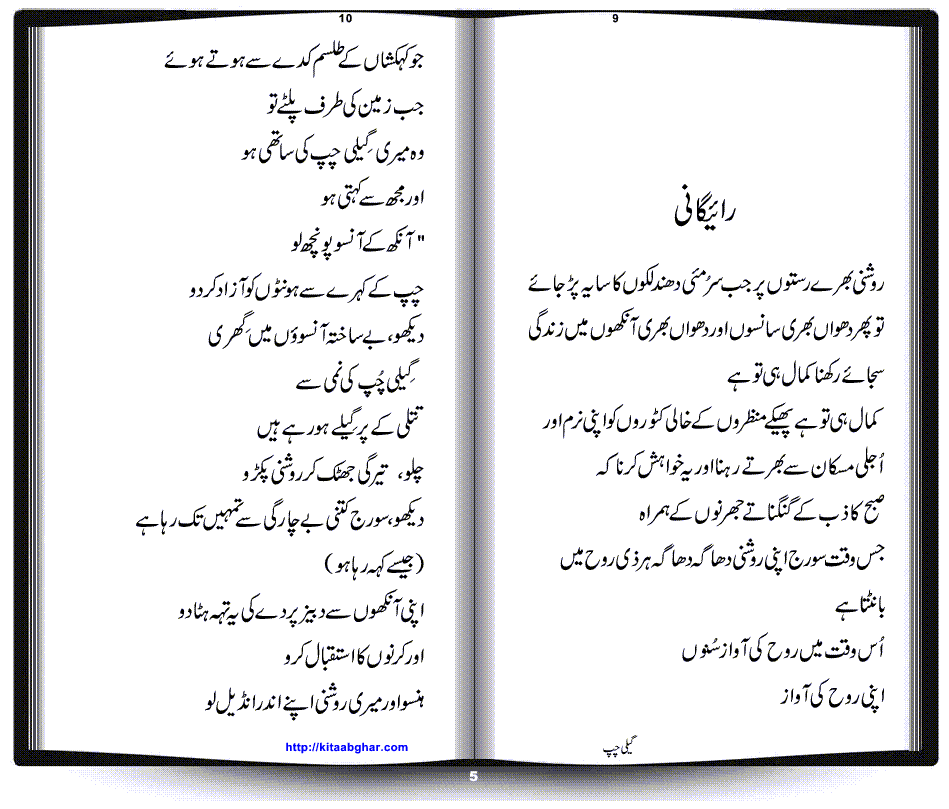 9
رائیگانی
روشنی بھرے رستوں پر جب سرُمئی دھندلکوں کا سایہ پڑ جائے
تو پھر دھواں بھری سانسوں اور دھواں بھری آنکھوں میں زندگی
سجائے رکھنا کمال ہی تو ہے
کمال ہی تو ہے پھیکے منظروں کے خالی کٹوروں کو اپنی نرم اور
اُجلی مسکان سے بھرتے رہنا اور یہ خواہش کرنا کہ
صبح کاذب کے گنگناتے جھرنوں کے ہمراہ
جس وقت سورج اپنی روشنی دھاگہ دھاگہ ہر ذی روح میں
بانٹتا ہے
اُس وقت میں روح کی آواز سُنوں
اپنی روح کی آواز
گیلی چپ
10
جو کہکشاں کے طلسم کدے سے ہوتے ہوئے
جب زمین کی طرف پلٹے تو
وہ میری گِیلی چپ کی ساتھی ہو
اور مجھ سے کہتی ہو
"آنکھ کے آنسو پونچھ لو
چپ کے کہرے سے ہونٹوں کو آزاد کر دو
دیکھو، بے ساختہ آنسوؤں میں گِھری
گِیلی چُپ کی نمی سے
تتلی کے پر گِیلے ہو رہے ہیں
چلو، تیرگی جھٹک کر روشنی پکڑو
دیکھو، سورج کتنی بے چارگی سے تمہیں تک رہا ہے
(جیسے کہہ رہا ہو)
اپنی آنکھوں سے دبیز پردے کی یہ تہہ ہٹا دو
اور کرنوں کا استقبال کرو
ہنسو اور میری روشنی اپنے اندر انڈیل لو
http://kitaabghar.com
5